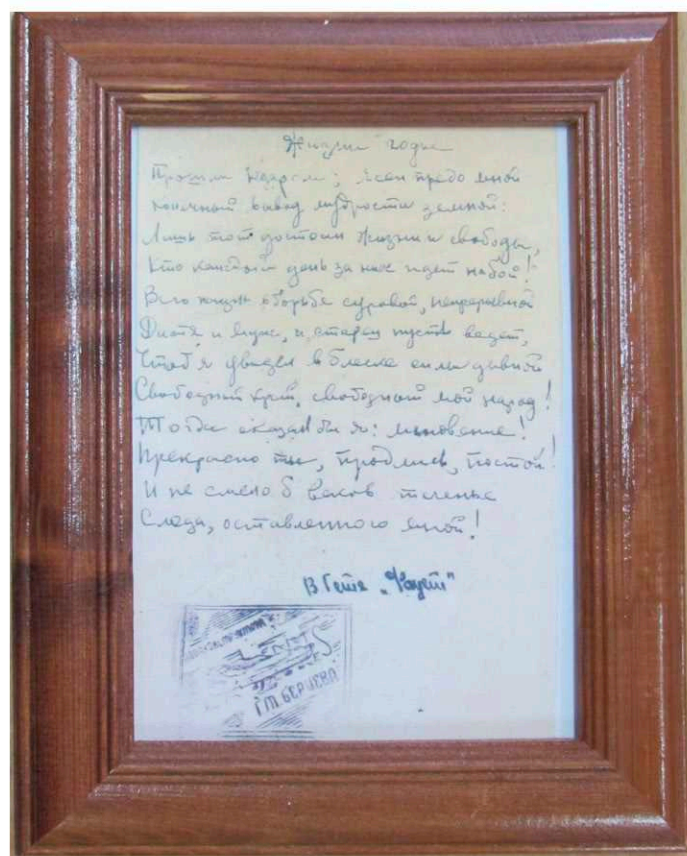 Жизни годы
Прошли недаром; ясен предо мной
Конечный вывод мудрости земной:
Лишь тот достоин жизни и свободы,
Кто каждый день за них идет на бой!
Всю жизнь в борьбе суровой, непрерывной
Дитя и муж, и старец пусть ведет,
Чтоб я увидел в блеске силы дивной
Свободный край, свободный мой народ!
Тогда сказал бы я: мгновенье!
Прекрасно ты, продлись, постой!
И не смело б веков теченье
Следа, оставленного мной!
В Гете „Фауст“
Г.М. БЕРИЕВА